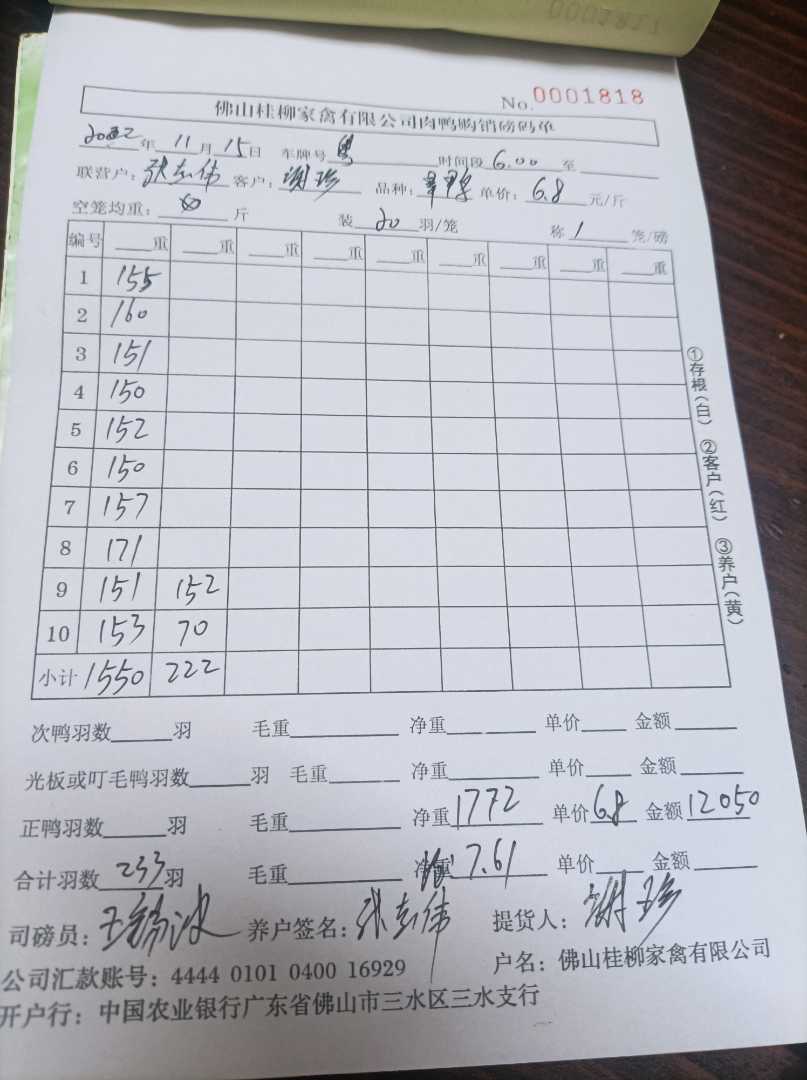 No. 0001818
佛山桂柳家禽有限公司肉鸭购销磅码单
2022年 11月 15日 车牌号 时间段 6.00 至
联营户: 张志伟 客户: 谢珍 品种: 单价: 6.8 元/斤
空笼均重: 斤 装 20 羽/笼 称 1 笼/磅
编号 重 重 重 重 重 重 重 重 重
1 155
2 160
3 151
4 150
5 152
6 150
7 157
8 171
9 151 152
10 153 70
小计 1550 222
次鸭羽数 羽 毛重 净重 单价 金额
光板或叮毛鸭羽数 羽 毛重 净重 单价 金额
正鸭羽数 羽 毛重 净重 1772 单价 6.8 金额 12050
合计羽数 233 羽 毛重 净重 7.61 单价 金额
司磅员: 养户签名: 张志伟 提货人: 谢珍
公司汇款账号: 4444 0101 0400 16929 户名: 佛山桂柳家禽有限公司
开户行: 中国农业银行广东省佛山市三水区三水支行
①存根(白) ②客户(红) ③养户(黄)